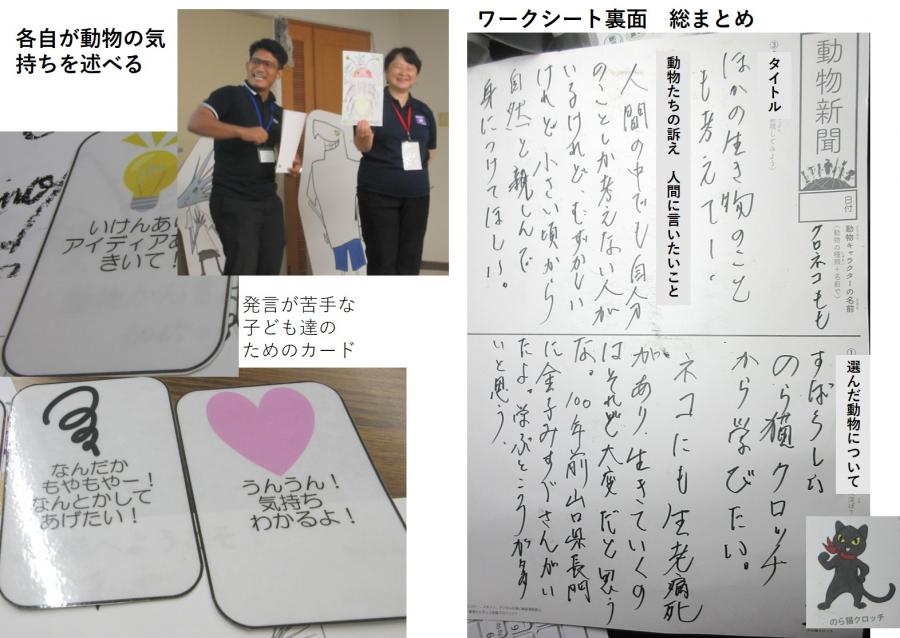 各自が動物の気
持ちを述べる
いけんあ
アイディアあ
きいて！
発言が苦手な
子ども達の
ためのカード
なんだか
もやもやー！
なんとかして
あげたい！
うんうん！
気持ち
わかるよ！
ワークシート裏面　総まとめ
動物新聞
日付
動物キャラクターの名前
（動物の種類＋名前で）
クロネコ もも
③
タイトル
ほかの生き物のこと
も考えてー。
動物たちの訴え　人間に言いたいこと
人間の中でも自分
のことしか考えない人が
いるけれど、むずかしい
けれど小さい頃から
自然と親しんで
身につけてほしい。
①
選んだ動物について
すばらしい
のら猫クロッチ
から学びたい。
ネコにも生老病死
があり、生きていくの
はそれぞれ大変だと思う
な。100年前山口県長門
に金子みすゞさんがい
たよ。学ぶところが多
いと思う。
のら猫クロッチ